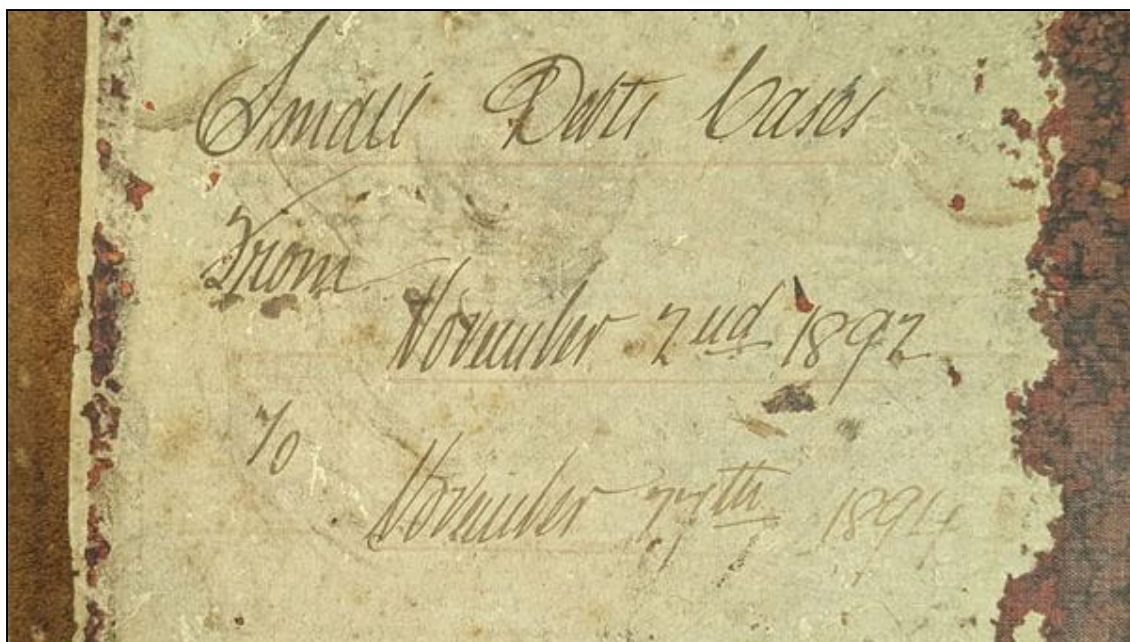 Small Debts Cases
From
November 2nd 1892
To
November 1894